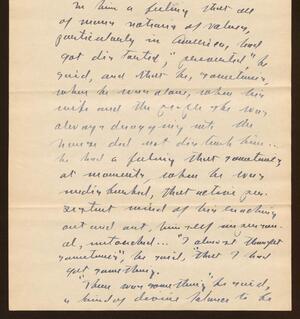 in him a feeling that all
of many notions of values,
particularly in America, had
got distorted, "perverted" he
said, and that he, sometimes,
when he was alone, when his
wife and the people she was
always dragging into the
house did not disturb him..
he had a feeling that sometimes
at moments, when he was
undisturbed, that active per-
sistent mind of his reaching
out and out, himself impersonal
al, untouched... "I almost thought
sometimes", he said, "that I had
got something.
"There was something" he said,
a kind of divine balance to be